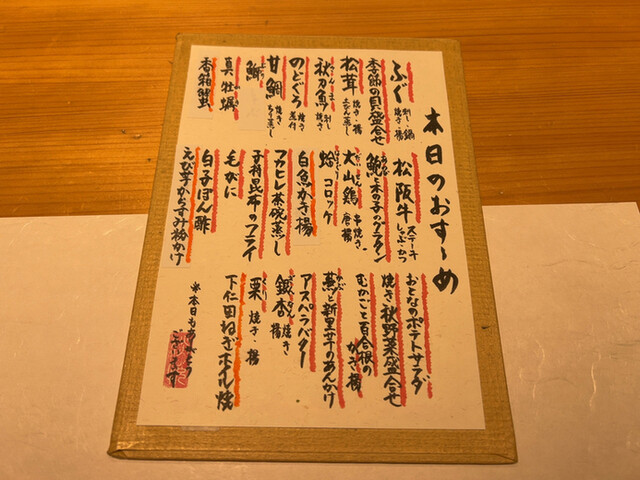 本日のおすゝめ
ふぐ 刺し・鍋 焼き・揚
季節の貝盛合せ
松茸 焼き・揚 土びん蒸し
秋刀魚 刺し 焼き
のどぐろ 焼き 煮付
甘鯛 焼き ちり蒸し
鰤
真牡蠣
香箱蟹
松阪牛 ステーキ しゃぶ・かつ
鮑と木の子のグラタン
大山鶏 串焼き 唐揚
蛤コロッケ
白魚かき揚
フカヒレ茶碗蒸し
子持昆布のフライ
毛がに
白子ぽん酢
えび芋からすみ粉かけ
おとなのポテトサラダ
焼き秋野菜盛合せ
むかごと百合根の
かき揚
蕪と新里芋のあんかけ
アスパラバター
銀杏 焼き 揚
栗 焼き・揚
下仁田ねぎホイル焼
※本日もありがとう
ございます